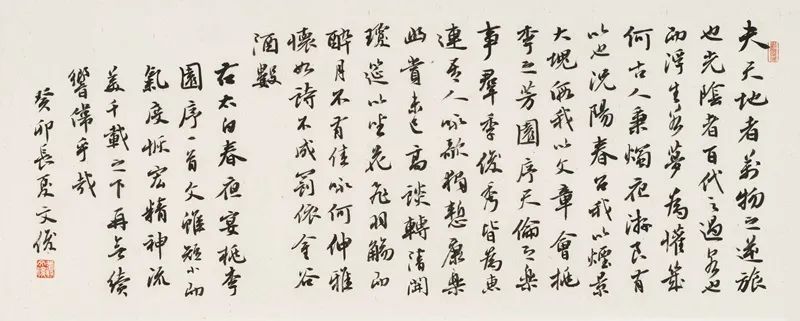 夫天地者萬物之逆旅
也光陰者百代之過客也
而浮生若夢為懽幾
何古人秉燭夜游良有
以也況陽春召我以煙景
大塊假我以文章會桃
李之芳園序天倫之樂
事羣季俊秀皆為惠
連吾人詠歌獨慙康樂
幽賞未已高談轉清開
瓊筵以坐花飛羽觴而
醉月不有佳詠何伸雅
懷如詩不成罰依金谷
酒數
右太白春夜宴桃李
園序一首文雖短小而
氣度恢宏精神流
美千載之下再無續
響偉乎哉
癸卯長夏文俊